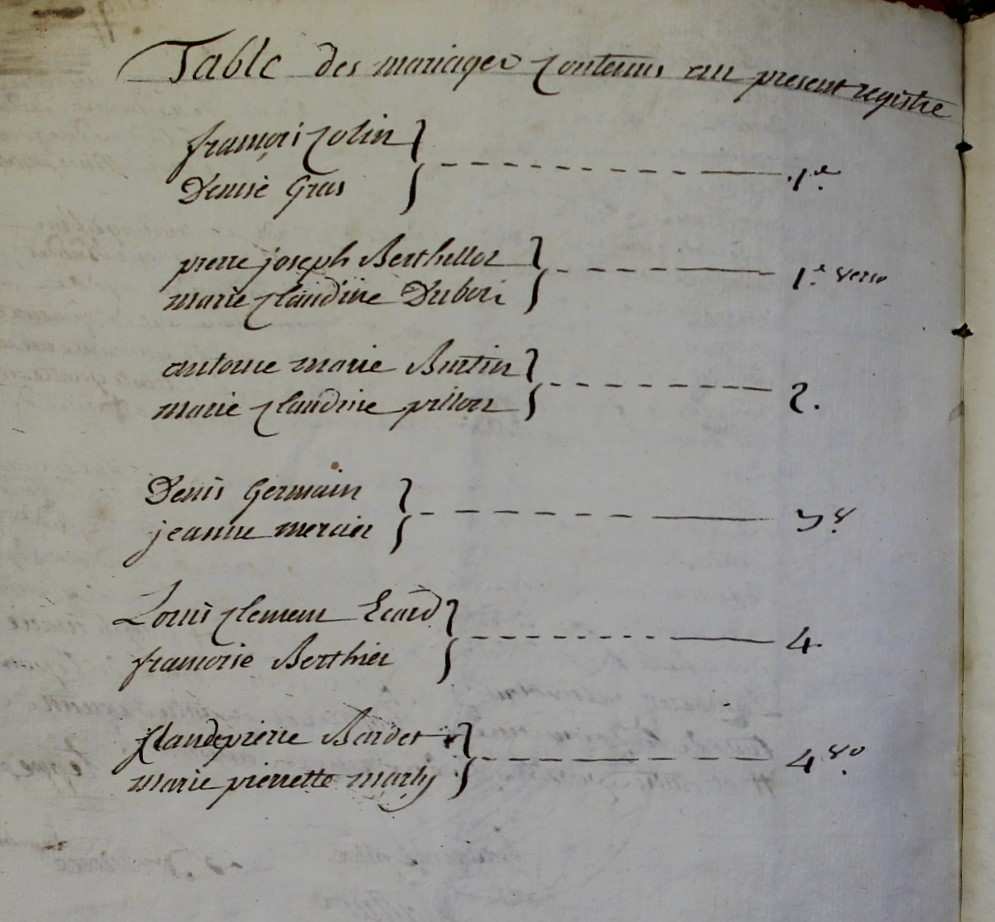 Table des mariages Contenus au present registre
françois Colin
Denise Gras 1er
pierre joseph Berthillot
marie Claudine Duboi 1er verso
antoine marie Burtin
marie Claudine pillon 2.
Denis Germain
jeanne mercier 3 v
Louis Clement Ecard
françoise Berthier 4
Claude pierre Bardet
marie pierrette marly 4 vo